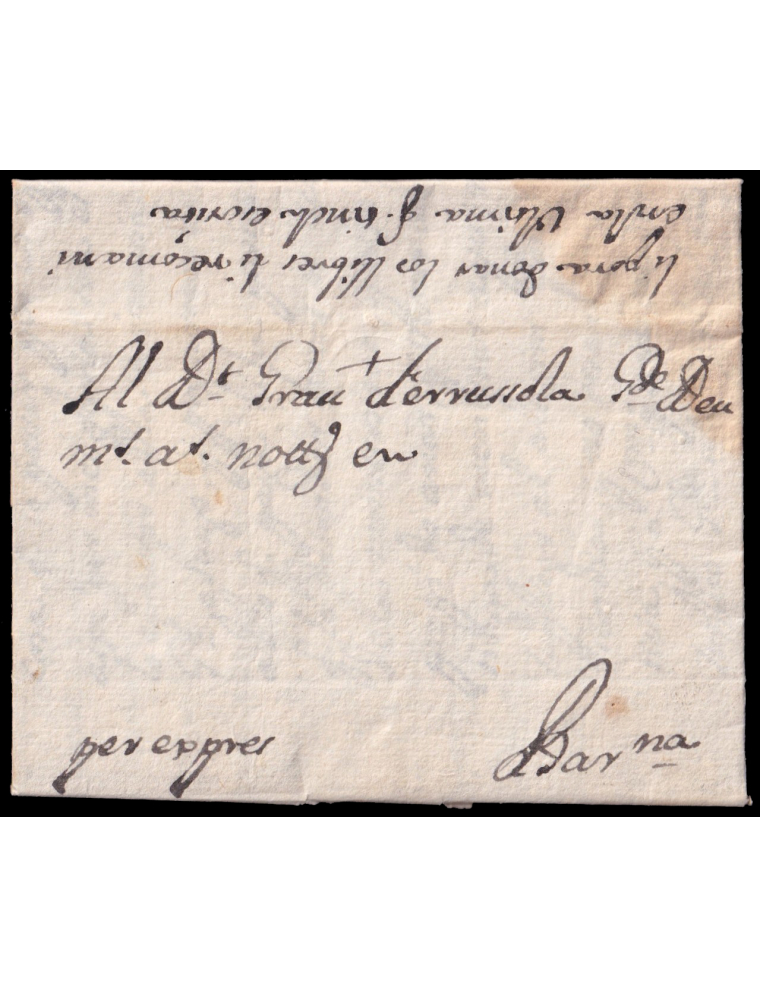 li pera donar los llibres li recomani
en la Ultima q. tinch escrita
Al Dr. Grau + Ferrussola Gde. Deu
mt. at. nottg en
per expres
Barna